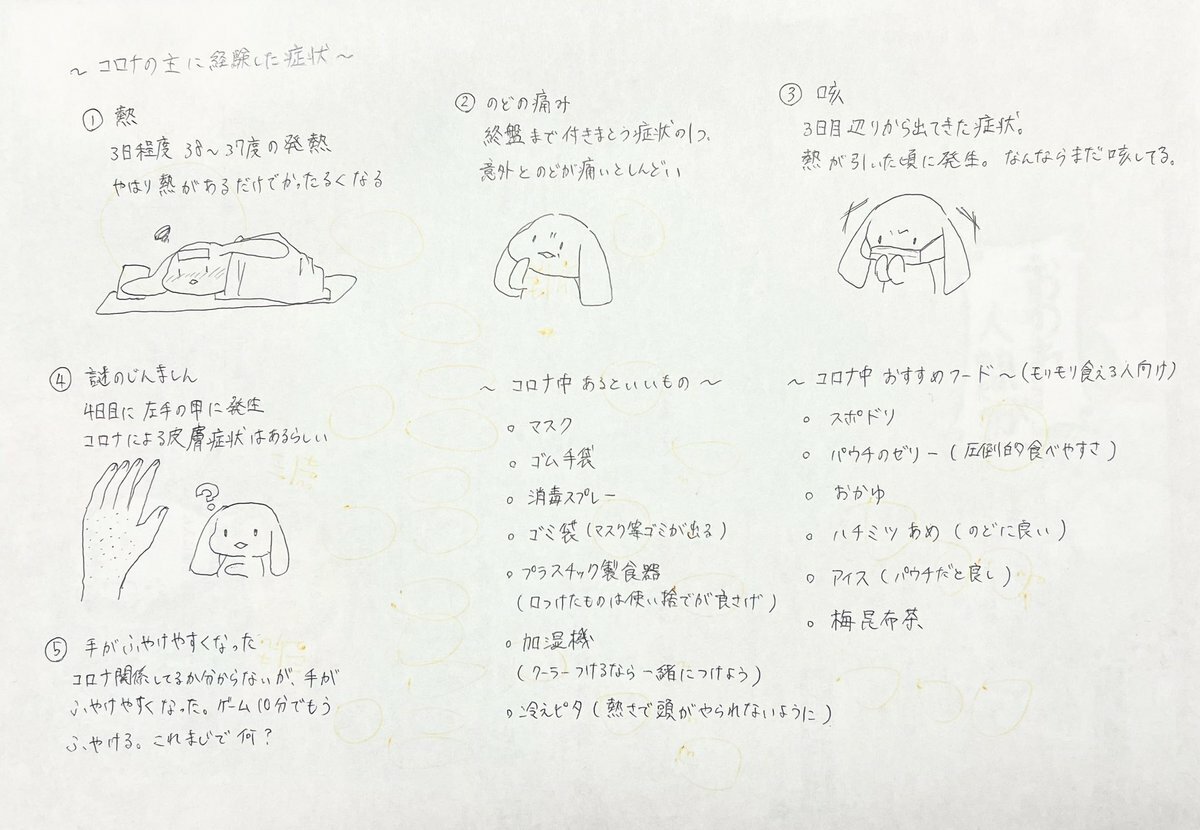 ～ コロナの主に経験した症状 ～
① 熱
3日程度 38～37度の発熱
やはり熱があるだけでかったるくなる
② のどの痛み
終盤まで付きまとう症状の1つ。
意外とのどが痛いとしんどい
③ 咳
3日目辺りから出てきた症状。
熱が引いた頃に発生。なんならまだ咳してる。
④ 謎のじんましん
4日目に左手の甲に発生
コロナによる皮膚症状はあるらしい
?
⑤ 手がふやけやすくなった
コロナ関係してるか分からないが、手が
ふやけやすくなった。ゲーム10分でもう
ふやける。これまじで何？
～ コロナ中 あるといいもの ～
○ マスク
○ ゴム手袋
○ 消毒スプレー
○ ゴミ袋（マスク等ゴミが出る）
○ プラスチック製食器
（口つけたものは使い捨てが良さげ）
○ 加湿機
（クーラーつけるなら一緒につけよう）
○ 冷えピタ（熱さで頭がやられないように）
～ コロナ中 おすすめフード ～（モリモリ食える人向け）
○ スポドリ
○ パウチのゼリー（圧倒的食べやすさ）
○ おかゆ
○ ハチミツあめ（のどに良い）
○ アイス（パウチだと良し）
○ 梅昆布茶